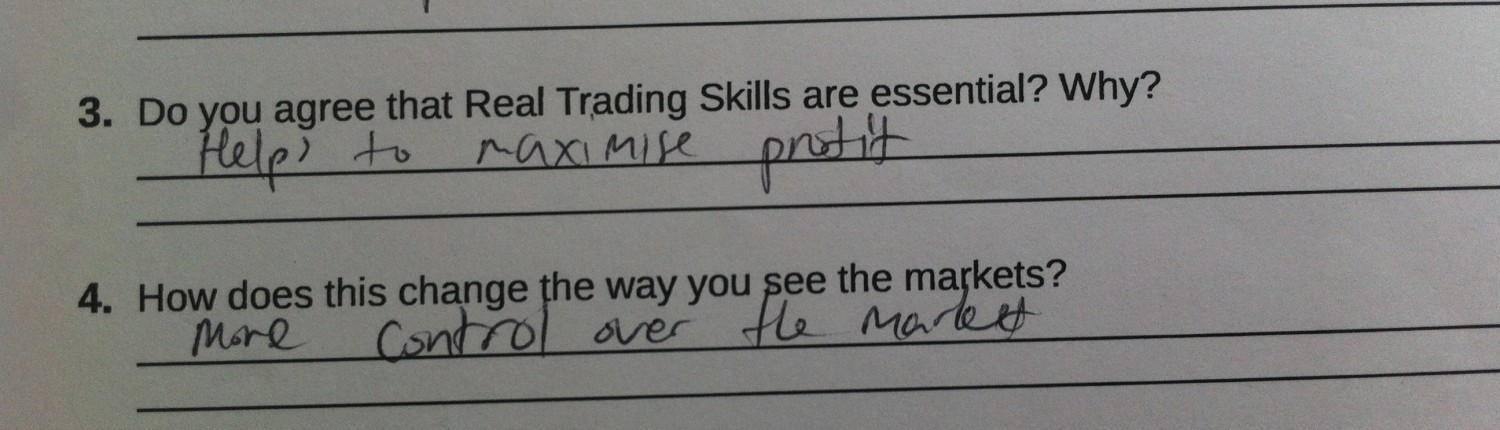 3. Do you agree that Real Trading Skills are essential? Why?
Helps to maximise profit
4. How does this change the way you see the markets?
More control over the market